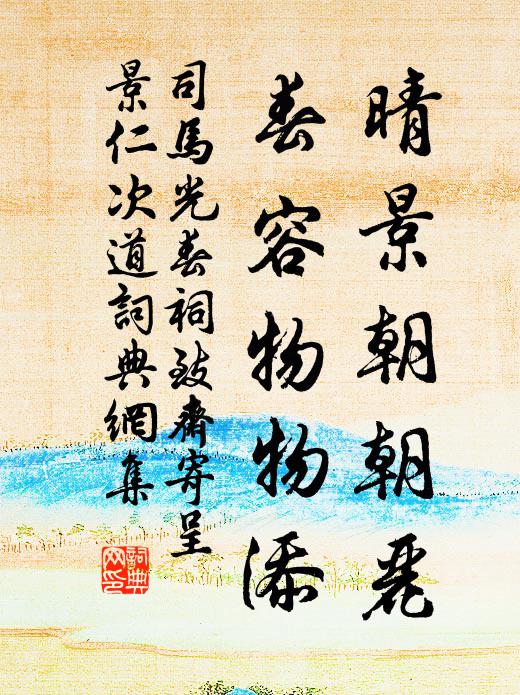 晴景朝朝麗
春容物物添
司馬光春祠致齋寄呈
景仁次道詞典網集
詞典網印